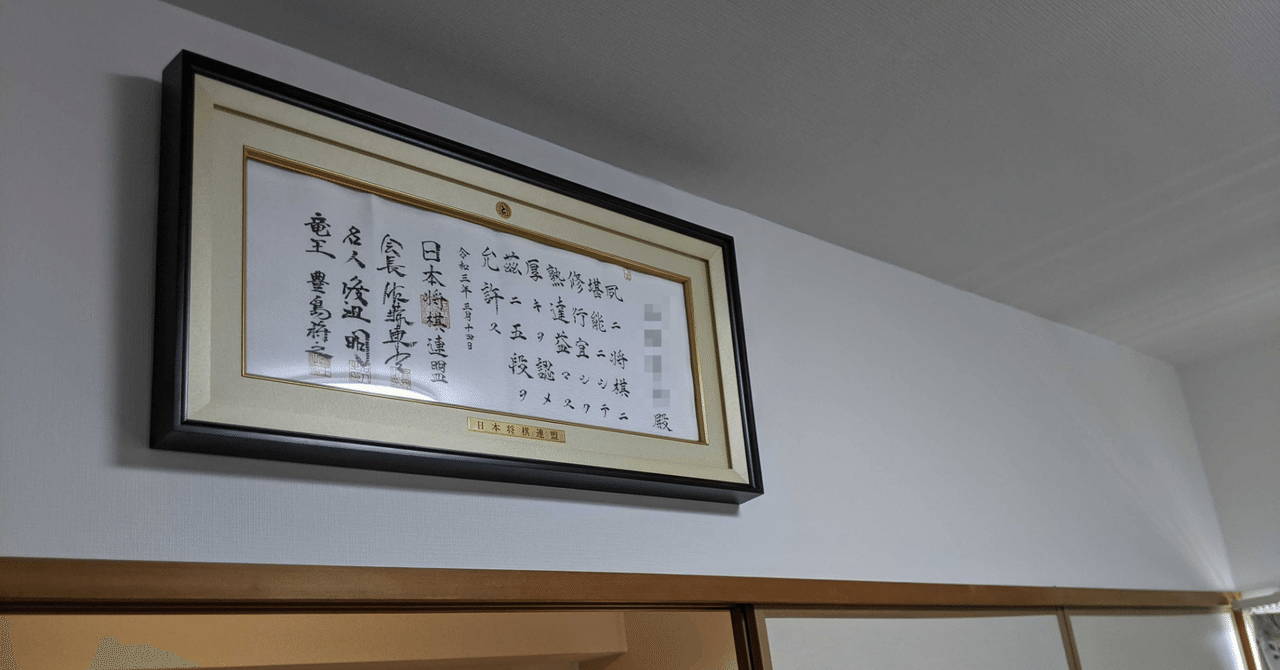 殿
夙ニ将棋ニ
堪能ニシテ
修行宜シク
熟達益マス
厚キヲ認メ
茲ニ五段ヲ
允許ス
令和三年三月十四日
日本将棋連盟
会長佐藤康光
名人渡辺明
竜王豊島将之
日本将棋連盟